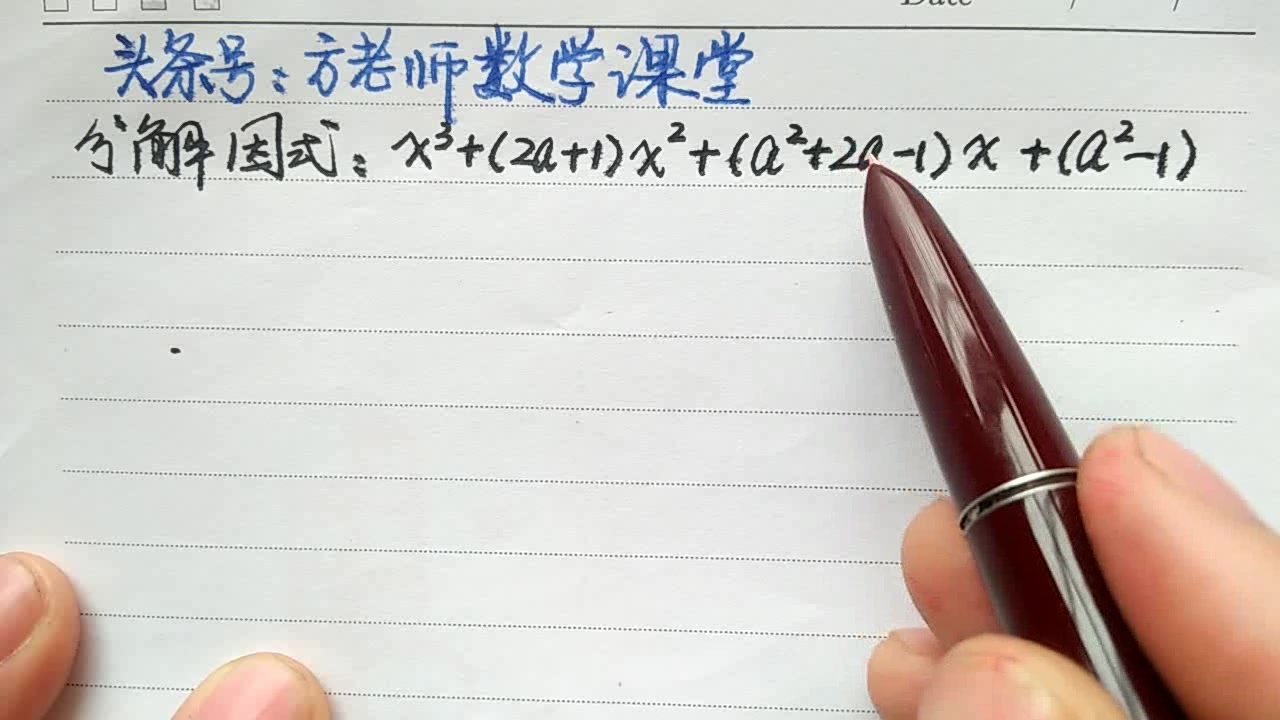 Date / /
头条号：方老师数学课堂
分解因式：x³+(2a+1)x²+(a²+2a-1)x+(a²-1)